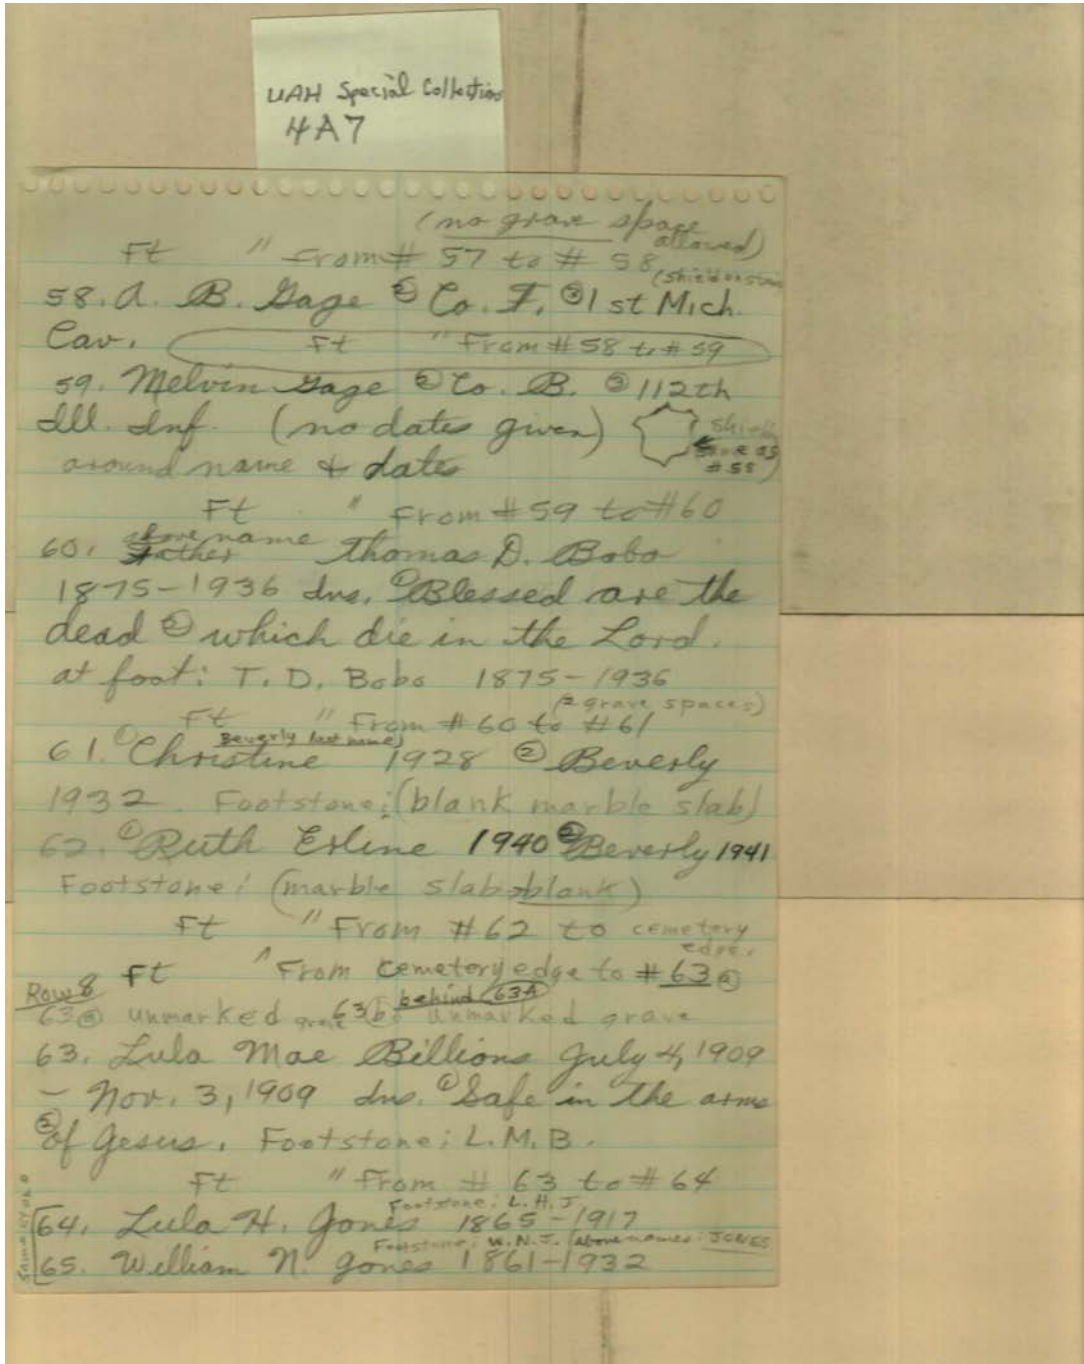 UAH Special Collections
4A7
(no grave space
allowed)
Ft " From # 57 to # 58
(shield on stone
58. A. B. Gage ② Co. F, ③ 1st Mich.
Cav. Ft " From # 58 to # 59
59. Melvin Gage ② Co. B. ③ 112th
Ill. Inf. (no dates given) shield
same as
#58)
around name & dates
Ft " From #59 to #60
above name
60. Father Thomas D. Bobo
1875-1936 Ins. ① Blessed are the
dead ② which die in the Lord.
at foot: T. D. Bobo 1875-1936
(2 grave spaces)
Ft " From # 60 to #61
Beverly last name)
61. ① Christine 1928 ② Beverly
1932. Footstone: (blank marble slab)
62. ① Ruth Erline 1940 ② Beverly 1941
Footstone: (marble slab blank)
Ft " From #62 to cemetery
edge.
Ft " From cemetery edge to #63 ⓐ
Row 8
behind 63A
63ⓐ unmarked grave 63ⓑ. unmarked grave
63. Lula Mae Billions July 4, 1909
- Nov. 3, 1909 Ins. ① Safe in the arms
② of Jesus. Footstone: L.M.B.
Ft " From # 63 to # 64
Footstone: L.H.J.
64. Lula H. Jones 1865-1917
Footstone: W.N.J. (above names: JONES
65. William N. Jones 1861-1932
same stone